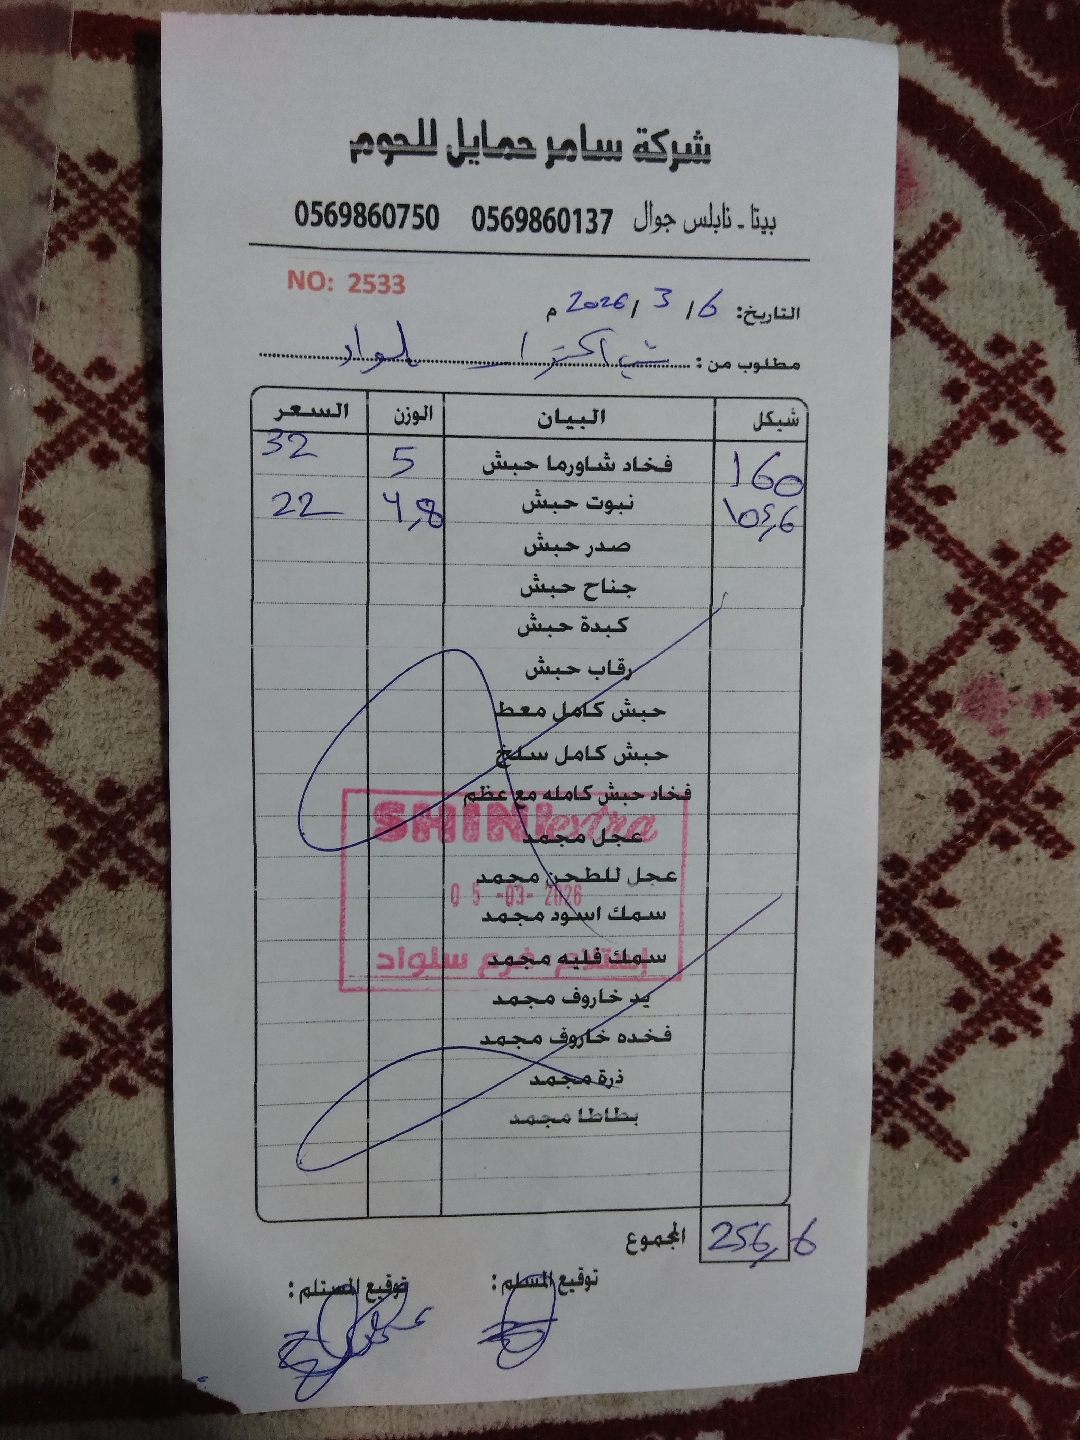 شركة سامر حمايل للحوم
بيتا - نابلس جوال 0569860137 0569860750
NO: 2533
التاريخ: 6 / 3 / 2026 م
مطلوب من : شيني اكسترا سلواد
شيكل البيان الوزن السعر
160 فخاد شاورما حبش 5 32
105,6 نبوت حبش 4,8 22
صدر حبش
جناح حبش
كبدة حبش
رقاب حبش
حبش كامل معط
حبش كامل سلخ
فخاد حبش كامله مع عظم
SHINI extra
عجل مجمد
عجل للطحن مجمد
05 -03- 2026
سمك اسود مجمد
سمك فليه مجمد
إستلام فرع سلواد
يد خاروف مجمد
فخده خاروف مجمد
ذرة مجمد
بطاطا مجمد
المجموع 256,6
توقيع المسلم : توقيع المستلم :